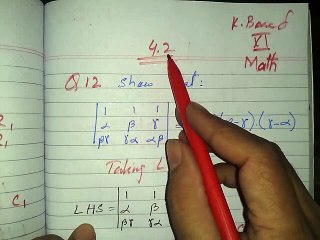 K. Based
XI
Math
4.2
Q.12 Show
| 1 1 1 |
| α β γ | = (β-γ).(γ-α)
| βγ γα αβ |
Taking L
LHS = | 1 1
α β
βγ γα
C₁
C₁